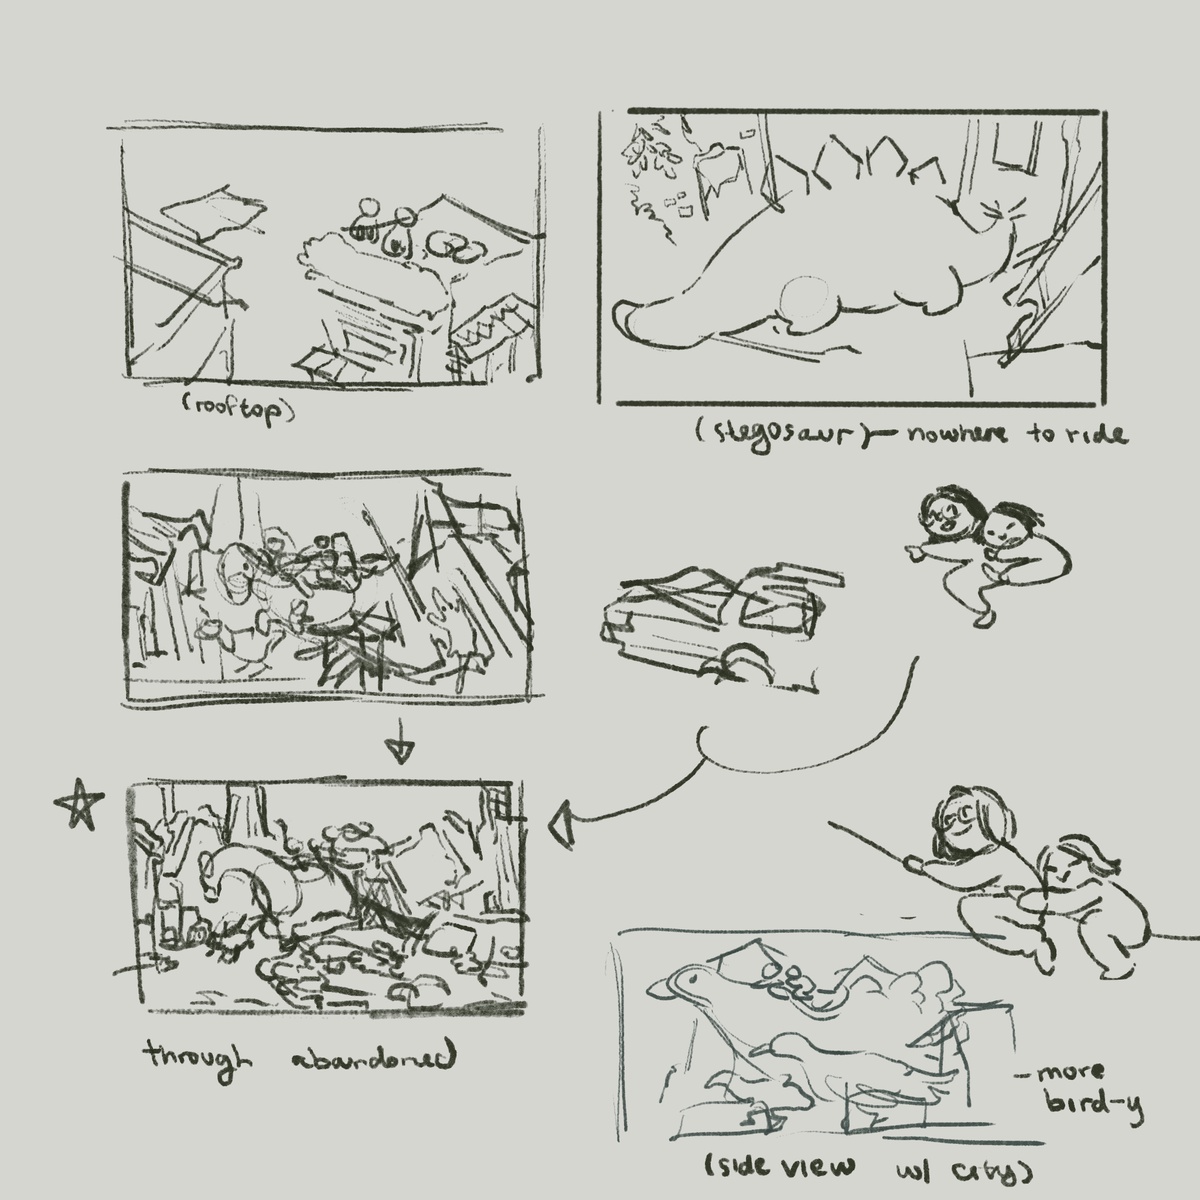 (rooftop)
(stegosaur) — nowhere to ride
through abandoned
- more
bird-y
(side view w/ city)